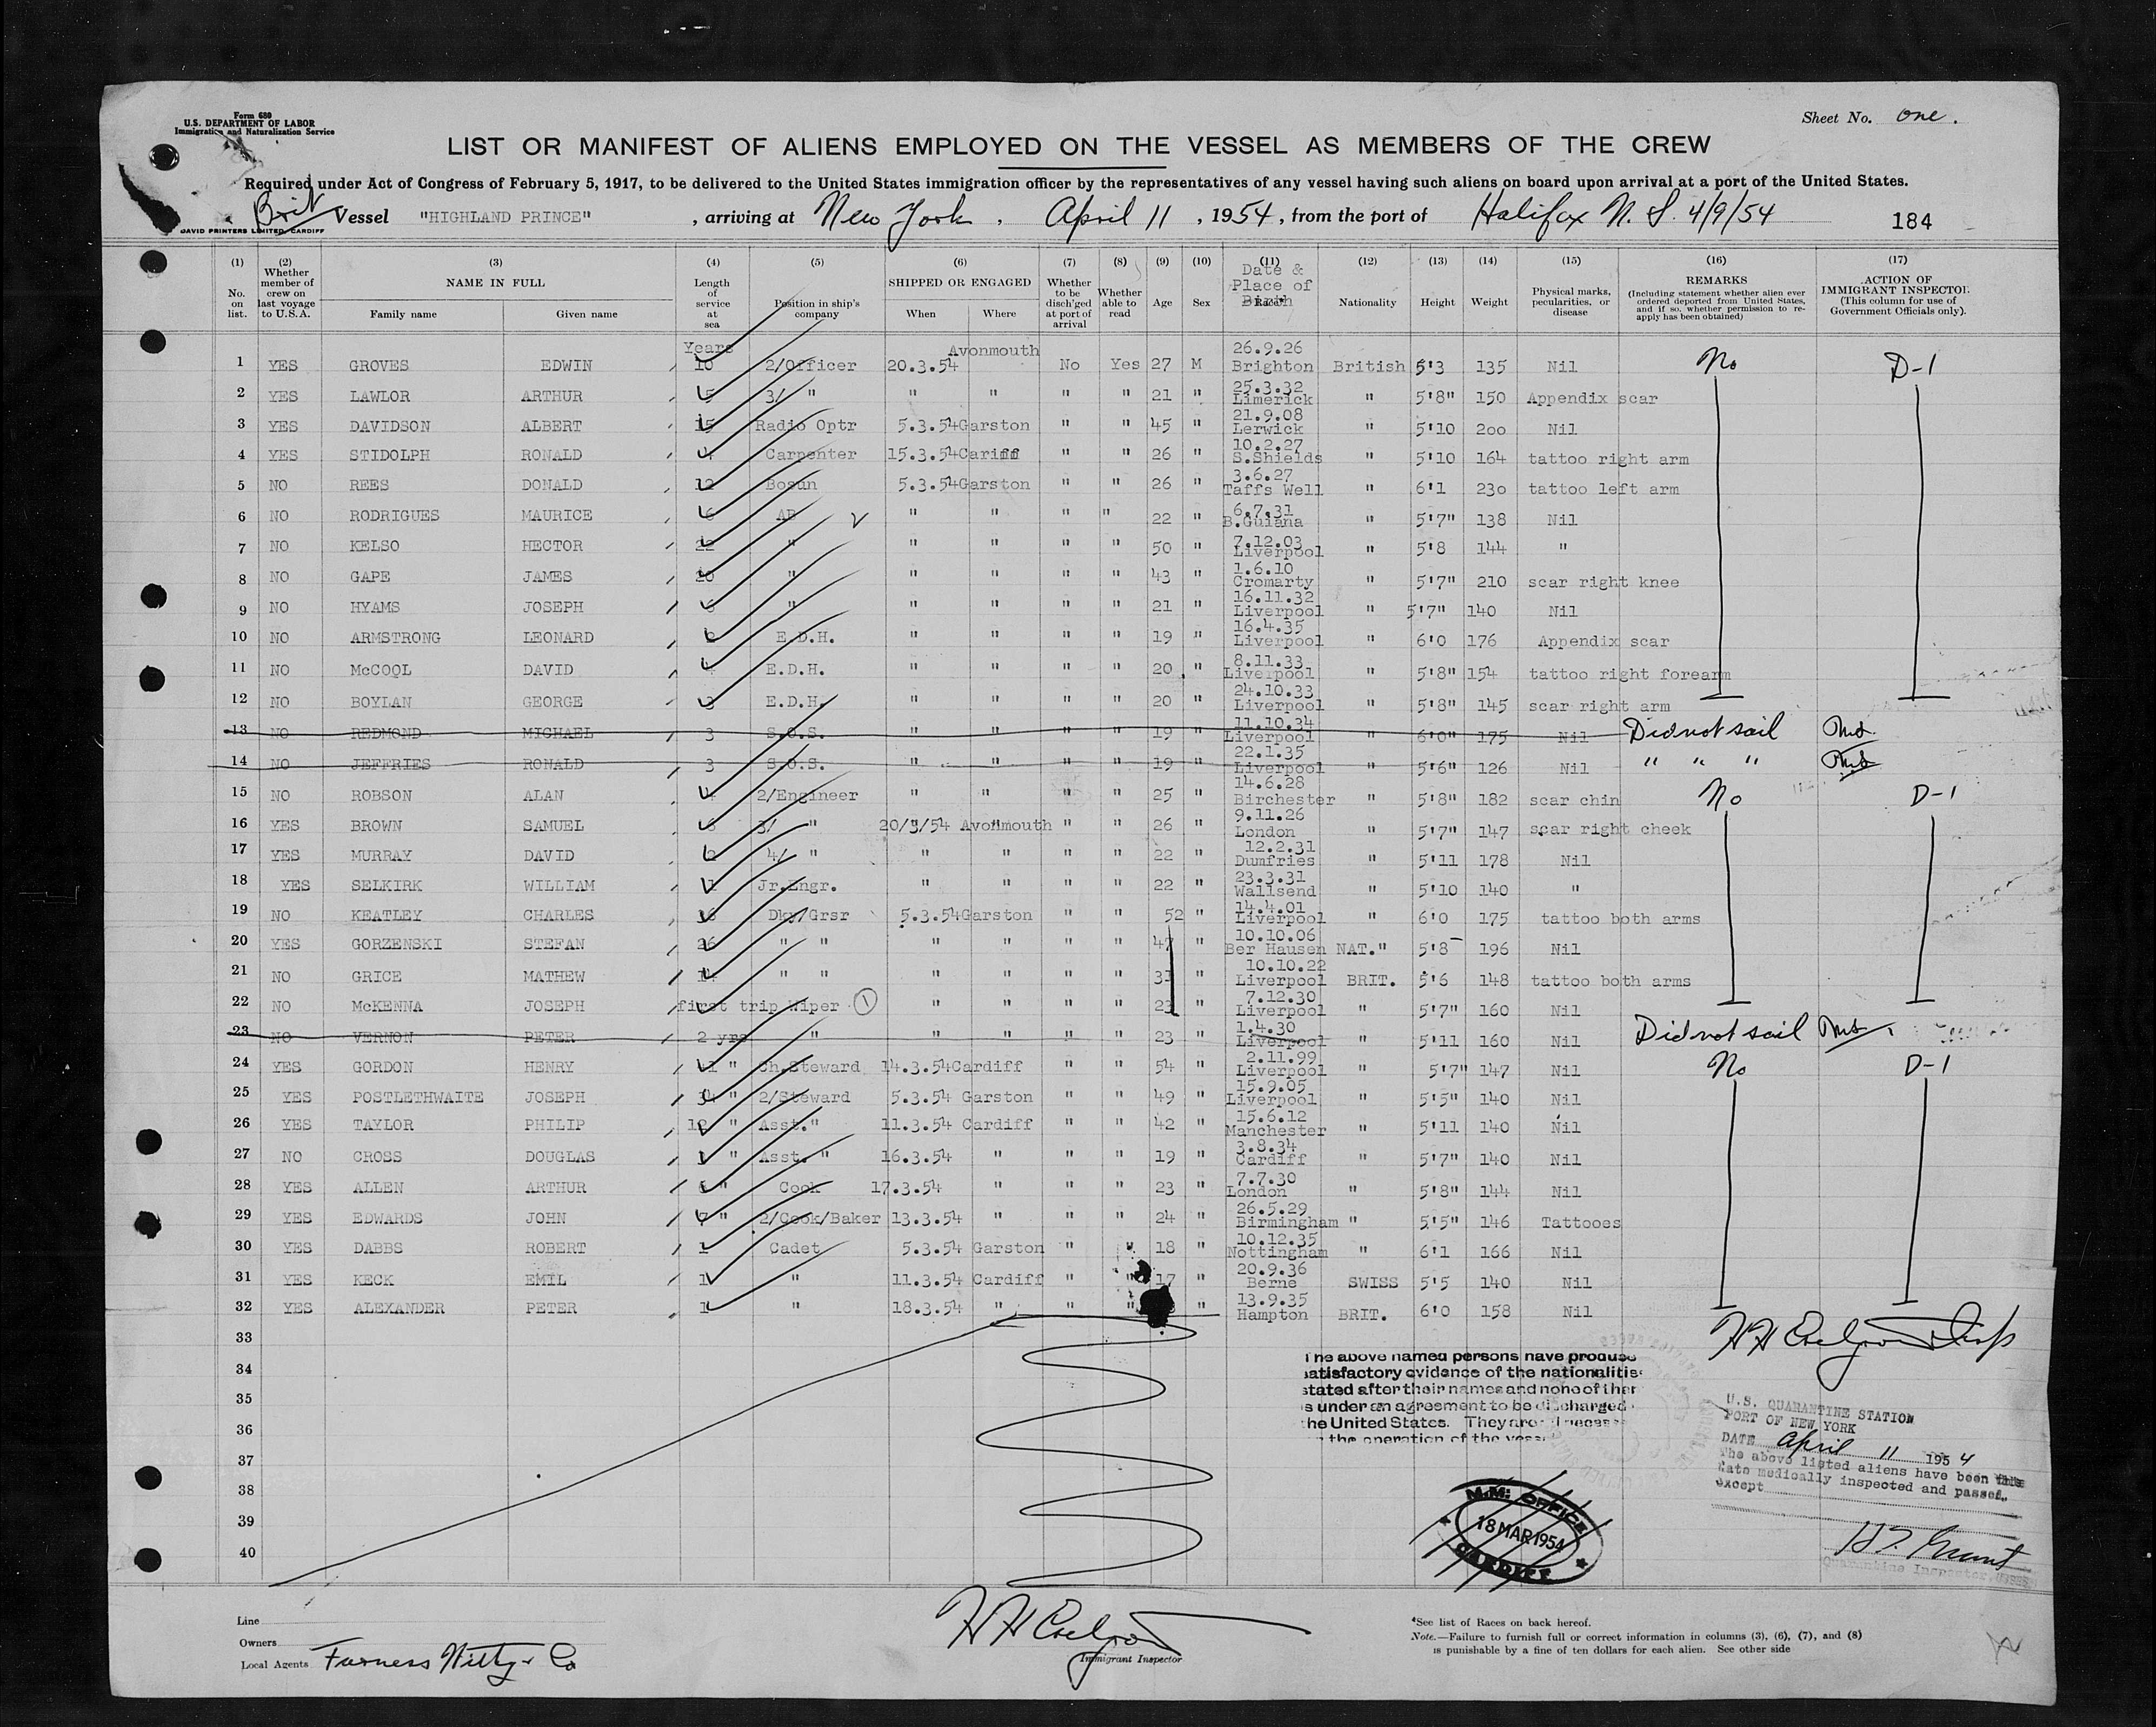 Form 680
U.S. DEPARTMENT OF LABOR
Immigration and Naturalization Service
Sheet No. one.
LIST OR MANIFEST OF ALIENS EMPLOYED ON THE VESSEL AS MEMBERS OF THE CREW
Required under Act of Congress of February 5, 1917, to be delivered to the United States immigration officer by the representatives of any vessel having such aliens on board upon arrival at a port of the United States.
Brit Vessel "HIGHLAND PRINCE", arriving at New York, April 11, 1954, from the port of Halifax N.S. 4/9/54 184
DAVID PRINTERS LIMITED, CARDIFF
(1) No. on list. (2) Whether member of crew on last voyage to U.S.A. (3) NAME IN FULL Family name Given name (4) Length of service at sea (5) Position in ship's company (6) SHIPPED OR ENGAGED When Where (7) Whether to be disch'ged at port of arrival (8) Whether able to read (9) Age (10) Sex (11) Date & Place of Birth (12) Nationality (13) Height (14) Weight (15) Physical marks, pecularities, or disease (16) REMARKS (Including statement whether alien ever ordered deported from United States, and if so, whether permission to re-apply has been obtained) (17) ACTION OF IMMIGRANT INSPECTOR (This column for use of Government Officials only).
1 YES GROVES EDWIN Years 10 2/Officer 20.3.54 Avonmouth No Yes 27 M 26.9.26 Brighton British 5'3 135 Nil No D-1
2 YES LAWLOR ARTHUR 5 3/ " " " " " 21 " 25.3.32 Limerick " 5'8" 150 Appendix scar
3 YES DAVIDSON ALBERT 15 Radio Optr 5.3.54 Garston " " 45 " 21.9.08 Lerwick " 5'10 200 Nil
4 YES STIDOLPH RONALD 4 Carpenter 15.3.54 Cariff " " 26 " 10.2.27 S.Shields " 5'10 164 tattoo right arm
5 NO REES DONALD 12 Bosun 5.3.54 Garston " " 26 " 3.6.27 Taffs Well " 6'1 230 tattoo left arm
6 NO RODRIGUES MAURICE 6 AB " " " " 22 " 6.7.31 B.Guiana " 5'7" 138 Nil
7 NO KELSO HECTOR 22 " " " " " 50 " 7.12.03 Liverpool " 5'8 144 "
8 NO GAPE JAMES 20 " " " " " 43 " 1.6.10 Cromarty " 5'7" 210 scar right knee
9 NO HYAMS JOSEPH 6 " " " " " 21 " 16.11.32 Liverpool " 5'7" 140 Nil
10 NO ARMSTRONG LEONARD 2 E.D.H. " " " " 19 " 16.4.35 Liverpool " 6'0 176 Appendix scar
11 NO McCOOL DAVID E.D.H. " " " " 20 " 8.11.33 Liverpool " 5'8" 154 tattoo right forearm
12 NO BOYLAN GEORGE 3 E.D.H. " " " " 20 " 24.10.33 Liverpool " 5'8" 145 scar right arm
13 NO REDMOND MICHAEL 3 S.O.S. " " " " 19 " 11.10.34 Liverpool " 6'0" 175 Nil Did not sail
14 NO JEFFRIES RONALD 3 S.O.S. " " " " 19 " 22.1.35 Liverpool " 5'6" 126 Nil " " "
15 NO ROBSON ALAN 4 2/Engineer " " " " 25 " 14.6.28 Birchester " 5'8" 182 scar chin No D-1
16 YES BROWN SAMUEL 6 3/ " 20/3/54 Avonmouth " " 26 " 9.11.26 London " 5'7" 147 scar right cheek
17 YES MURRAY DAVID 2 4/ " " " " " 22 " 12.2.31 Dumfries " 5'11 178 Nil
18 YES SELKIRK WILLIAM 1 Jr.Engr. " " " " 22 " 23.3.31 Wallsend " 5'10 140 "
19 NO KEATLEY CHARLES 16 Dky/Grsr 5.3.54 Garston " " 52 " 14.4.01 Liverpool " 6'0 175 tattoo both arms
20 YES GORZENSKI STEFAN 26 " " " " " " 47 " 10.10.06 Ber Hausen NAT." 5'8 196 Nil
21 NO GRICE MATHEW 14 " " " " " " 31 " 10.10.22 Liverpool BRIT. 5'6 148 tattoo both arms
22 NO McKENNA JOSEPH first trip Wiper 1 " " " " 23 " 7.12.30 Liverpool " 5'7" 160 Nil
23 NO VERNON PETER 2 yrs " " " " " 23 " 1.4.30 Liverpool " 5'11 160 Nil Did not sail
24 YES GORDON HENRY 41 " Ch.Steward 14.3.54 Cardiff " " 54 " 2.11.99 Liverpool " 5'7" 147 Nil No D-1
25 YES POSTLETHWAITE JOSEPH 34 " 2/Steward 5.3.54 Garston " " 49 " 15.9.05 Liverpool " 5'5" 140 Nil
26 YES TAYLOR PHILIP 12 " Asst." 11.3.54 Cardiff " " 42 " 15.6.12 Manchester " 5'11 140 Nil
27 NO CROSS DOUGLAS 1 " Asst. " 16.3.54 " " " 19 " 3.8.34 Cardiff " 5'7" 140 Nil
28 YES ALLEN ARTHUR 6 " Cook 17.3.54 " " " 23 " 7.7.30 London " 5'8" 144 Nil
29 YES EDWARDS JOHN 7 " 2/Cook/Baker 13.3.54 " " " 24 " 26.5.29 Birmingham " 5'5" 146 Tattooes
30 YES DABBS ROBERT 1 Cadet 5.3.54 Garston " " 18 " 10.12.35 Nottingham " 6'1 166 Nil
31 YES KECK EMIL 1 " 11.3.54 Cardiff " " 17 " 20.9.36 Berne SWISS 5'5 140 Nil
32 YES ALEXANDER PETER 1 " 18.3.54 " " " " 13.9.35 Hampton BRIT. 6'0 158 Nil
33
34
35
36
37
38
39
40
The above named persons have produce
satisfactory evidence of the nationalities
stated after their names and none of them
is under an agreement to be discharged
the United States. They are
the operation of the vess
U.S. QUARANTINE STATION
PORT OF NEW YORK
DATE April 11 1954
The above listed aliens have been this
date medically inspected and passed,
except
Quarantine Inspector, USPHS
M.M. OFFICE
18 MAR 1954
CARDIFF
Line
Owners
Local Agents Furness Withy & Co
Immigrant Inspector
*See list of Races on back hereof.
Note.—Failure to furnish full or correct information in columns (3), (6), (7), and (8)
is punishable by a fine of ten dollars for each alien. See other side